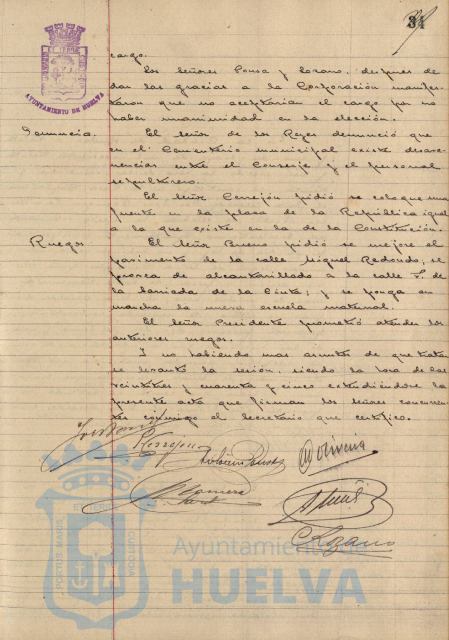 34
AYUNTAMIENTO DE HUELVA
cargo.
Los Señores Ponce y Lozano, después de
dar las gracias a la Corporación manifes-
taron que no aceptarían el cargo por no
haber unanimidad en la elección.
Denuncia. El Señor de los Reyes denunció que
en el Cementerio municipal existe desave-
nencias entre el Conserje y el personal
sepulturero.
El Señor Cerrejón pidió se coloque una
fuente en la plaza de la República igual
a la que existe en la de la Constitución.
Ruegos El Señor Bueno pidió se mejore el
pavimento de la calle Miguel Redondo; se
provea de alcantarillado a la calle F. de
la barriada de la Cinta; y se ponga en
marcha la nueva escuela maternal.
El Señor Presidente prometió atender los
anteriores ruegos.
Y no habiendo mas asuntos de que tratar
se levantó la sesión, siendo la hora de las
veintitres y cuarenta y cinco extendiéndose la
presente acta que firman los Señores concurren-
tes conmigo el Secretario que certifico.
C Lozano
PORTUS MARIS ET TERRAE CUSTODIA
Ayuntamiento de
HUELVA